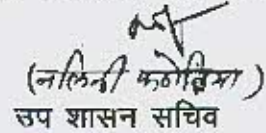 (नलिनी कठोतिया)
उप शासन सचिव